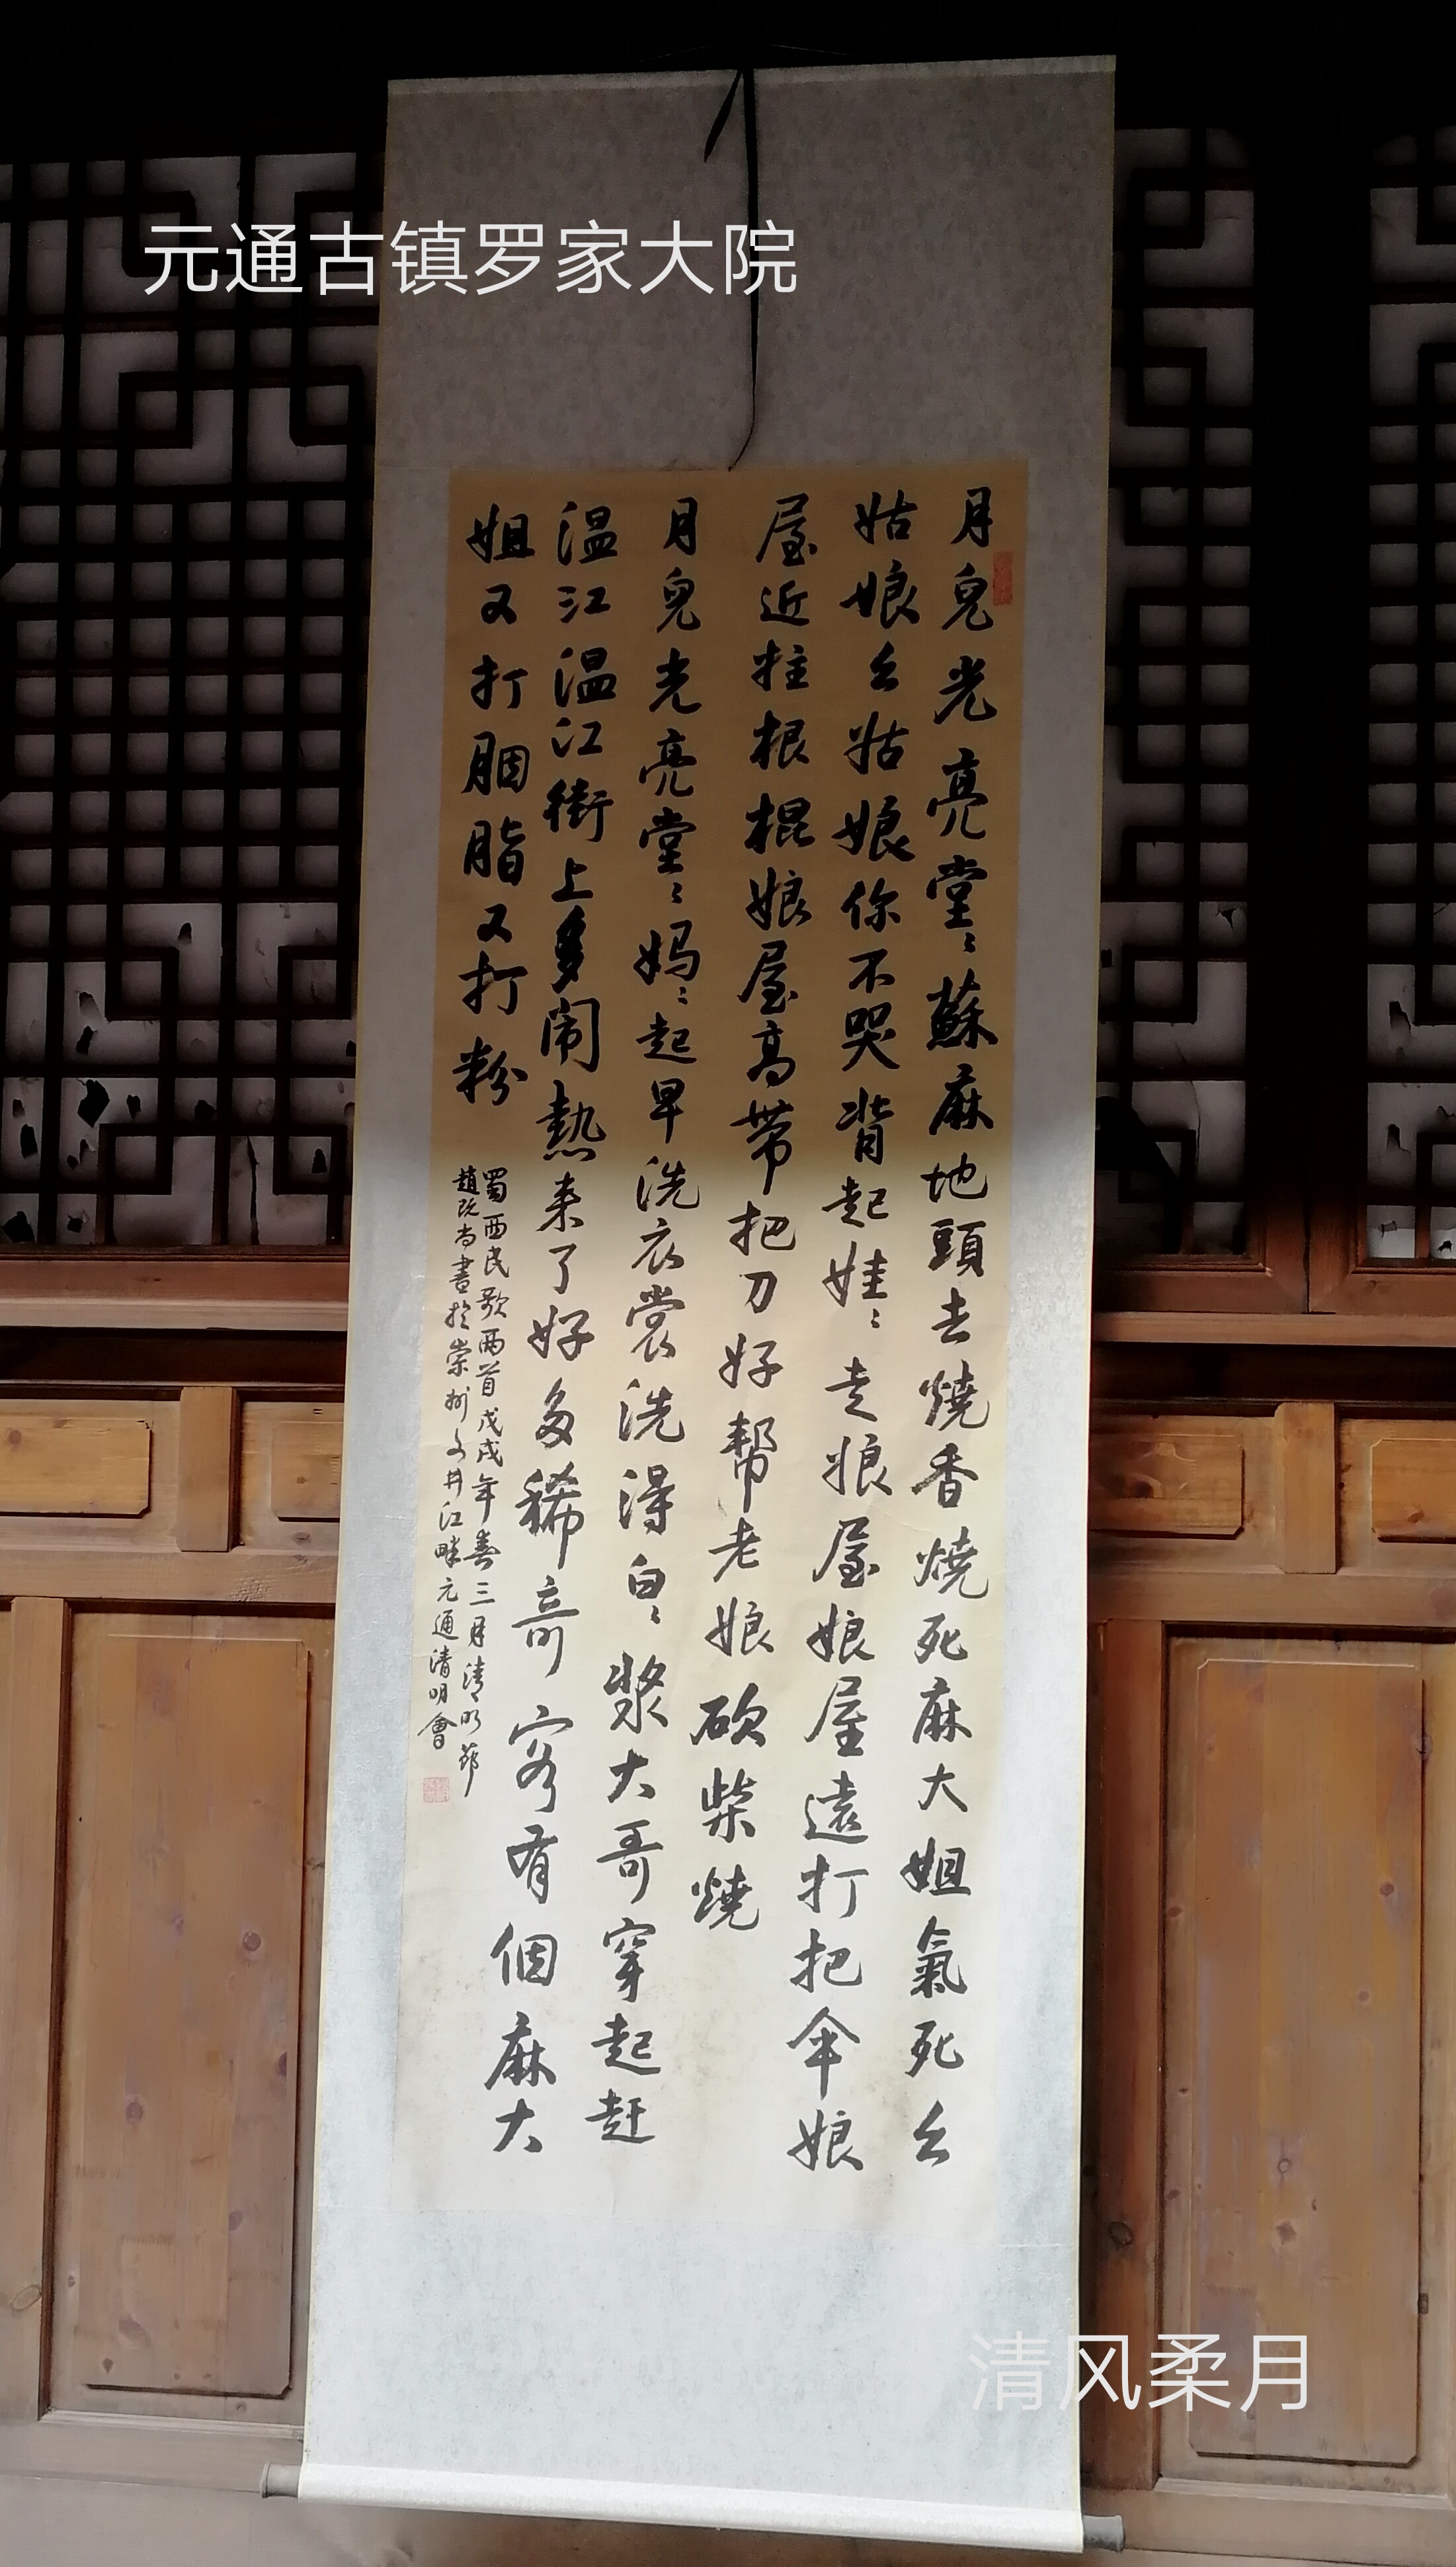 元通古镇罗家大院
月兒光亮堂〻蘇麻地頭去燒香燒死麻大姐氣死幺
姑娘幺姑娘你不哭背起娃〻走娘屋娘屋遠打把伞娘
屋近拄根棍娘屋高带把刀好帮老娘砍柴燒
月兒光亮堂〻妈〻起早洗衣裳洗得白〻漿大哥穿起赶
温江温江街上多闹熱来了好多稀奇客有個麻大
姐又打胭脂又打粉
蜀西民歌两首戊戌年春三月清明節
趙改尚書於崇州文井江畔元通清明會
清风柔月